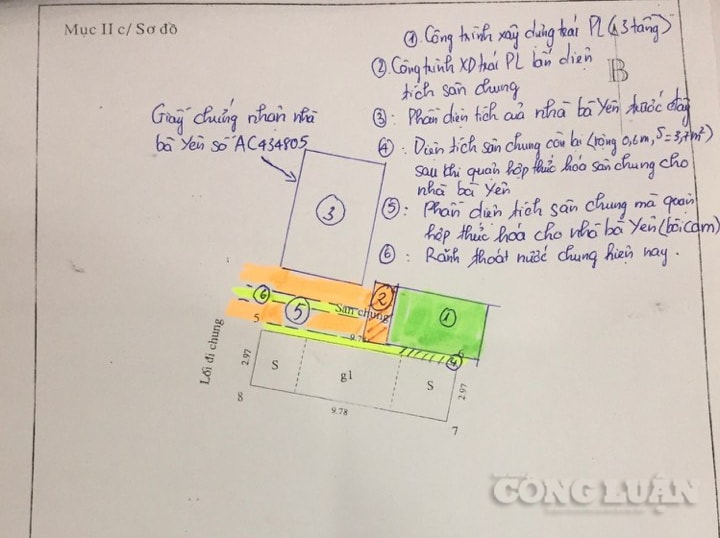 Mục II c/ Sơ đồ
① Công trình xây dựng trái PL (3 tầng)
② Công trình XD trái PL lấn diện
tích sân chung
B
Giấy chứng nhận nhà
bà Yên số AC434805
③: Phần diện tích của nhà bà Yên trước đây
④: Diện tích sân chung còn lại (rộng 0,6m, S=3,7m²)
sau khi quận hợp thức hóa sân chung cho
nhà bà Yên
⑤: Phần diện tích sân chung mà quận
hợp thức hóa cho nhà bà Yên (bôi cam)
⑥: Rãnh thoát nước chung hiện nay.
3
6
5
Sân chung
2
1
5
4
6
Lối đi chung
2.97
S
g1
S
2.97
8
9.78
7
CÔNG LUẬN